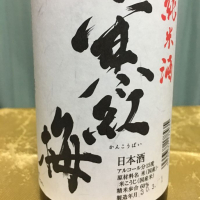 純米酒
寒紅梅
かんこうばい
日本酒
アルコール分15度
原材料名 米(国産)
米こうじ(国産米)
精米歩合60%
製造年月